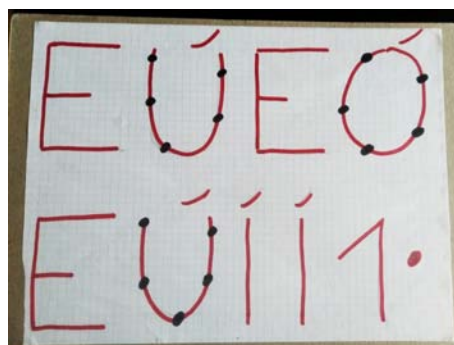 EÚEÓ
EÚÍÍ1.